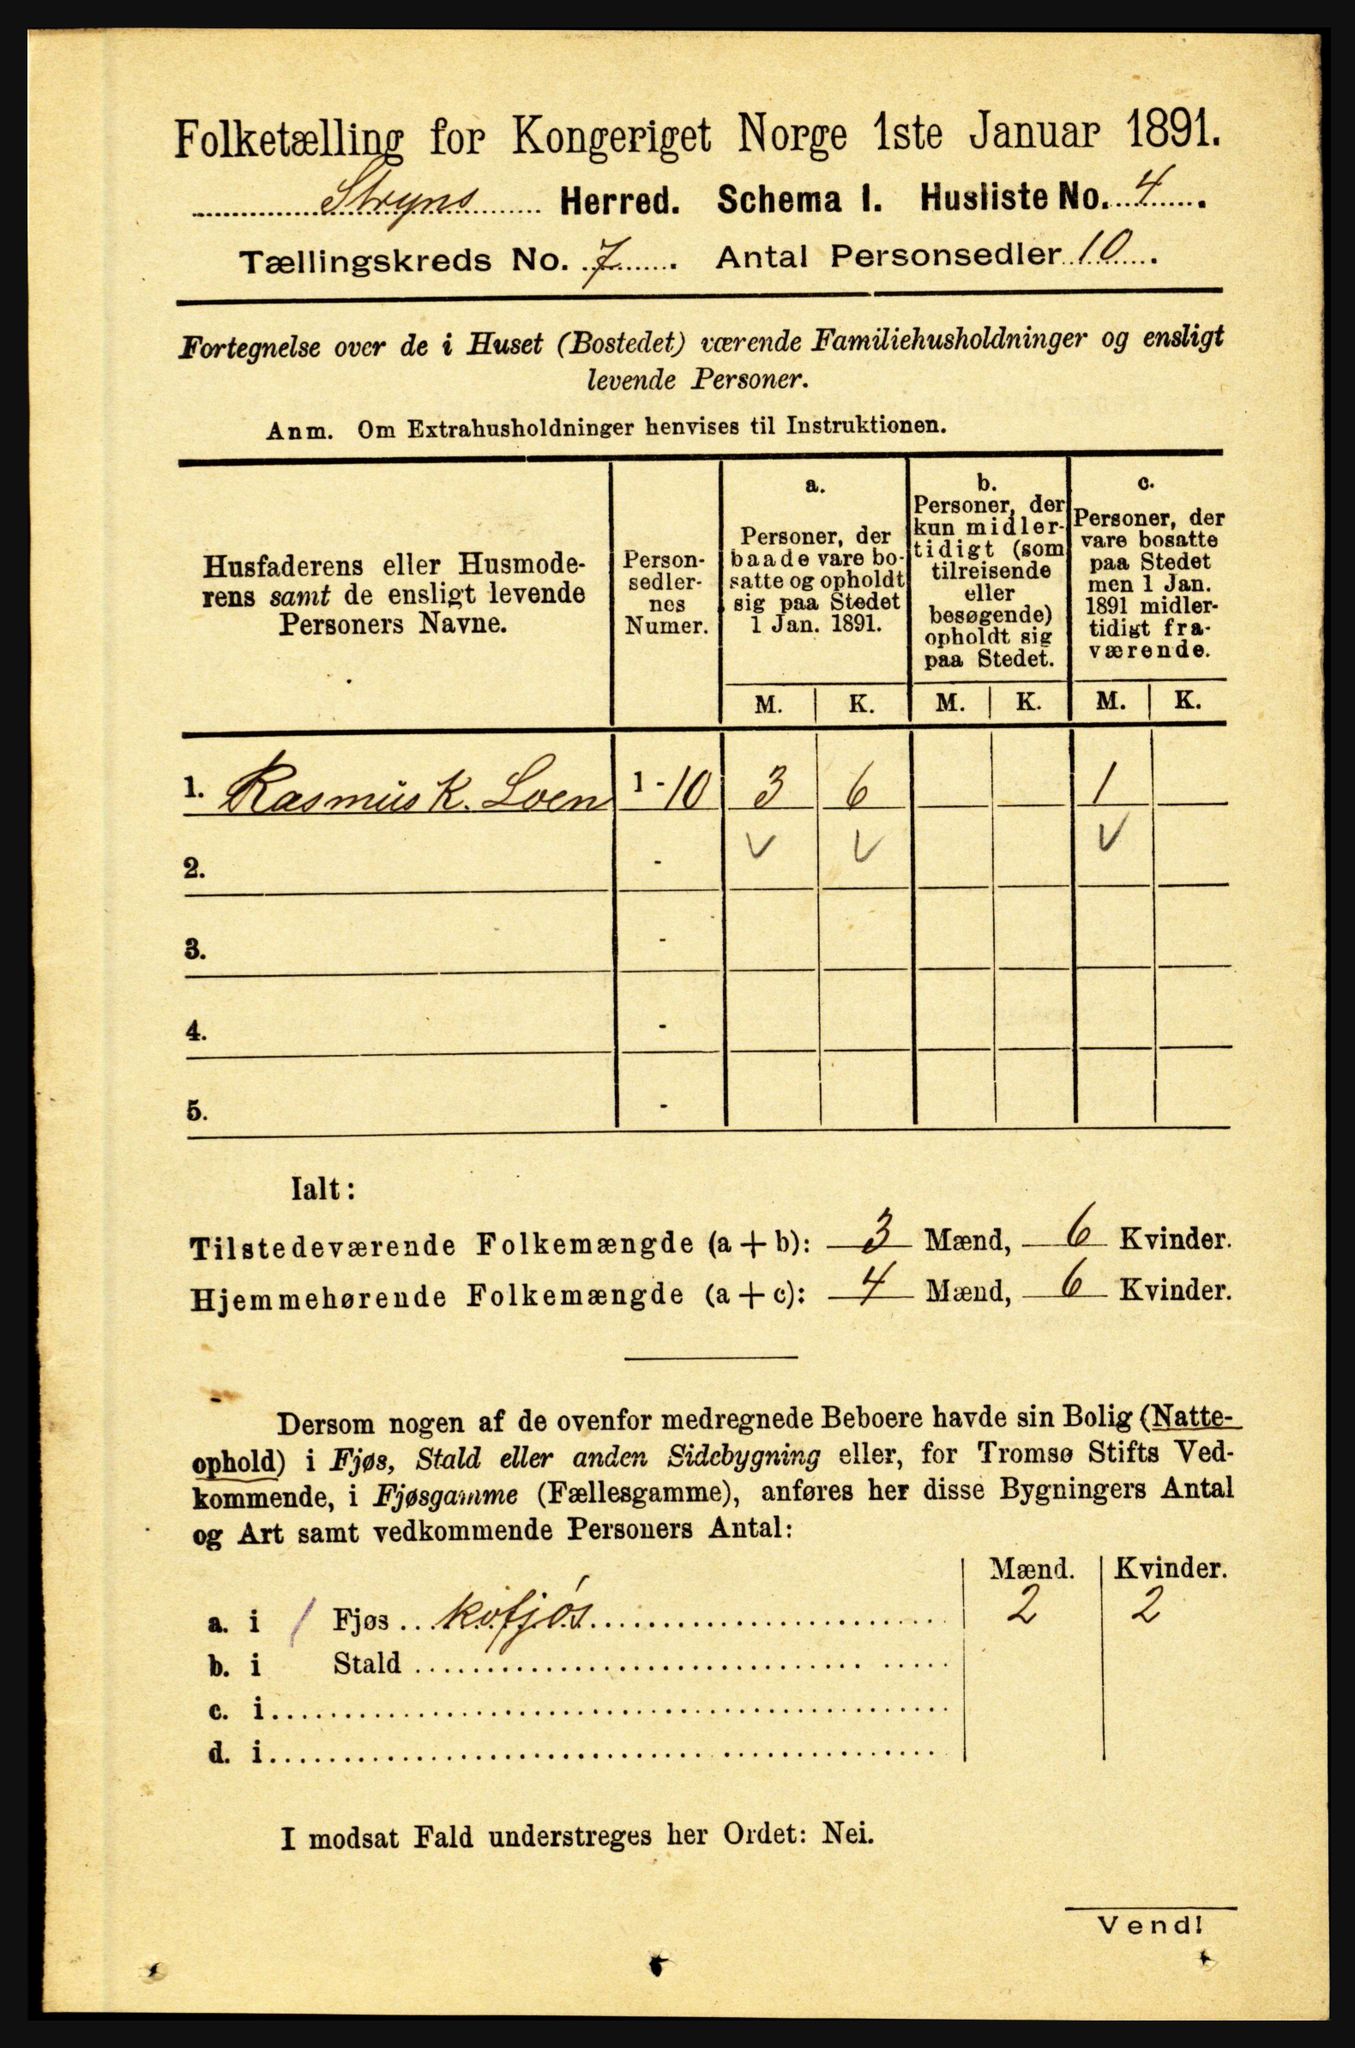 Folketælling for Kongeriget Norge 1ste Januar 1891.
Stryns Herred. Schema I. Husliste No. 4.
Tællingskreds No. 7. Antal Personsedler 10.
Fortegnelse over de i Huset (Bostedet) værende Familiehusholdninger og ensligt
levende Personer.
Anm. Om Extrahusholdninger henvises til Instruktionen.
Husfaderens eller Husmode-
rens samt de ensligt levende
Personers Navne.
Person-
sedler-
nes
Numer.
a.
Personer, der
baade vare bo-
satte og opholdt
sig paa Stedet
1 Jan. 1891.
b.
Personer, der
kun midler-
tidigt (som
tilreisende
eller
besøgende)
opholdt sig
paa Stedet.
c.
Personer, der
vare bosatte
paa Stedet
men 1 Jan.
1891 midler-
tidigt fra-
værende.
M. K. M. K. M. K.
1. Rasmus K. Loen 1-10 3 6 1
2. - V V V
3. -
4. -
5. -
Ialt:
Tilstedeværende Folkemængde (a+b): 3 Mænd, 6 Kvinder.
Hjemmehørende Folkemængde (a+c): 4 Mænd, 6 Kvinder.
Dersom nogen af de ovenfor medregnede Beboere havde sin Bolig (Natte-
ophold) i Fjøs, Stald eller anden Sidebygning eller, for Tromsø Stifts Ved-
kommende, i Fjøsgamme (Fællesgamme), anføres her disse Bygningers Antal
og Art samt vedkommende Personers Antal:
Mænd. Kvinder.
a. i 1 Fjøs .. kofjós 2 2
b. i Stald
c. i
d. i
I modsat Fald understreges her Ordet: Nei.
Vend!